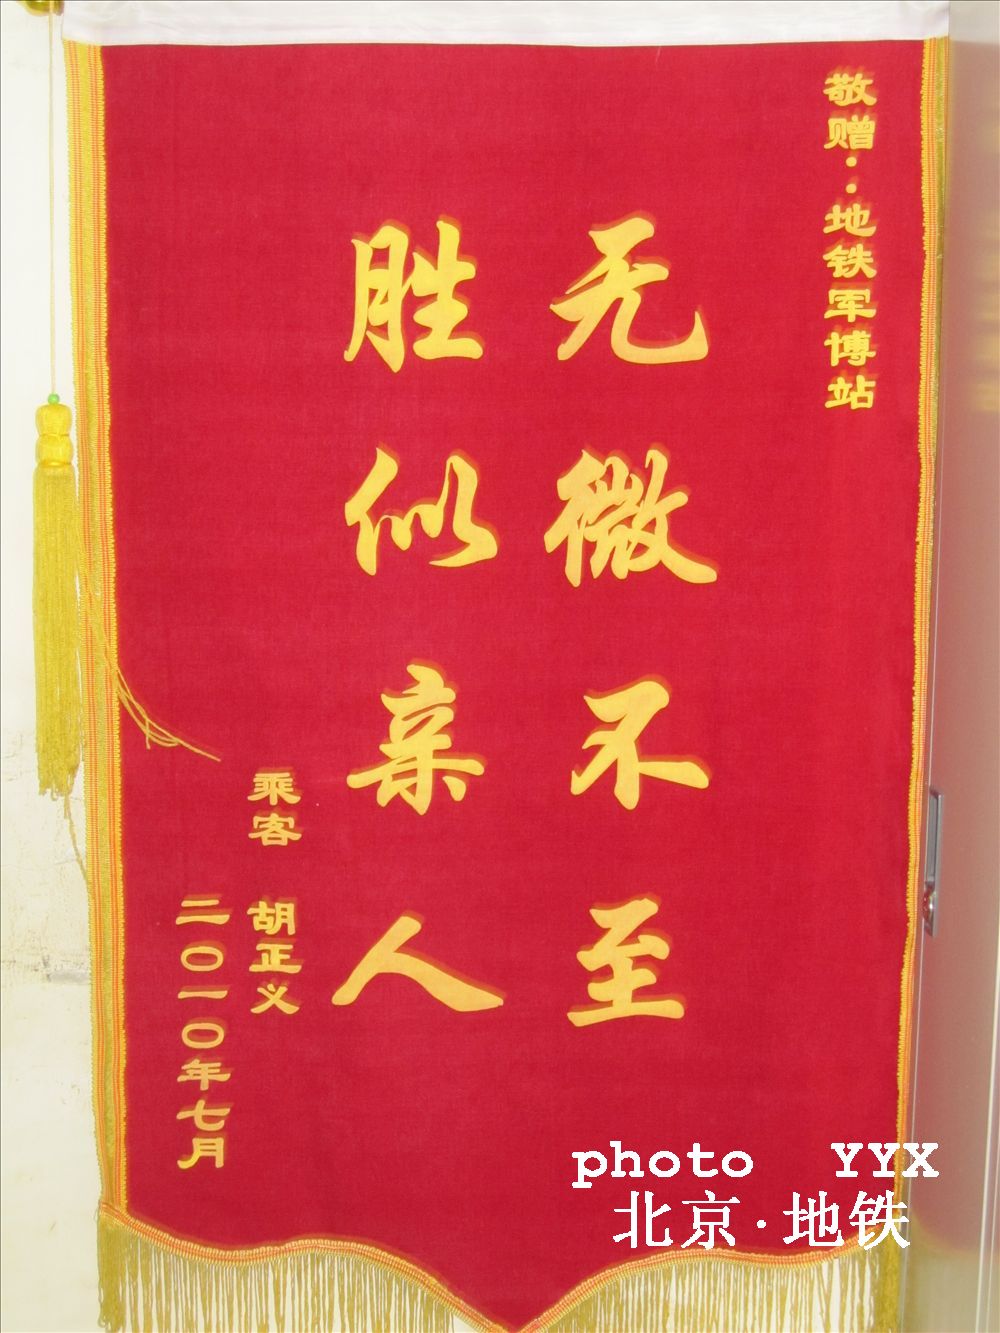 敬赠：地铁军博站
无微不至
胜似亲人
乘客 胡正义
二〇一〇年七月
photo YYX
北京·地铁